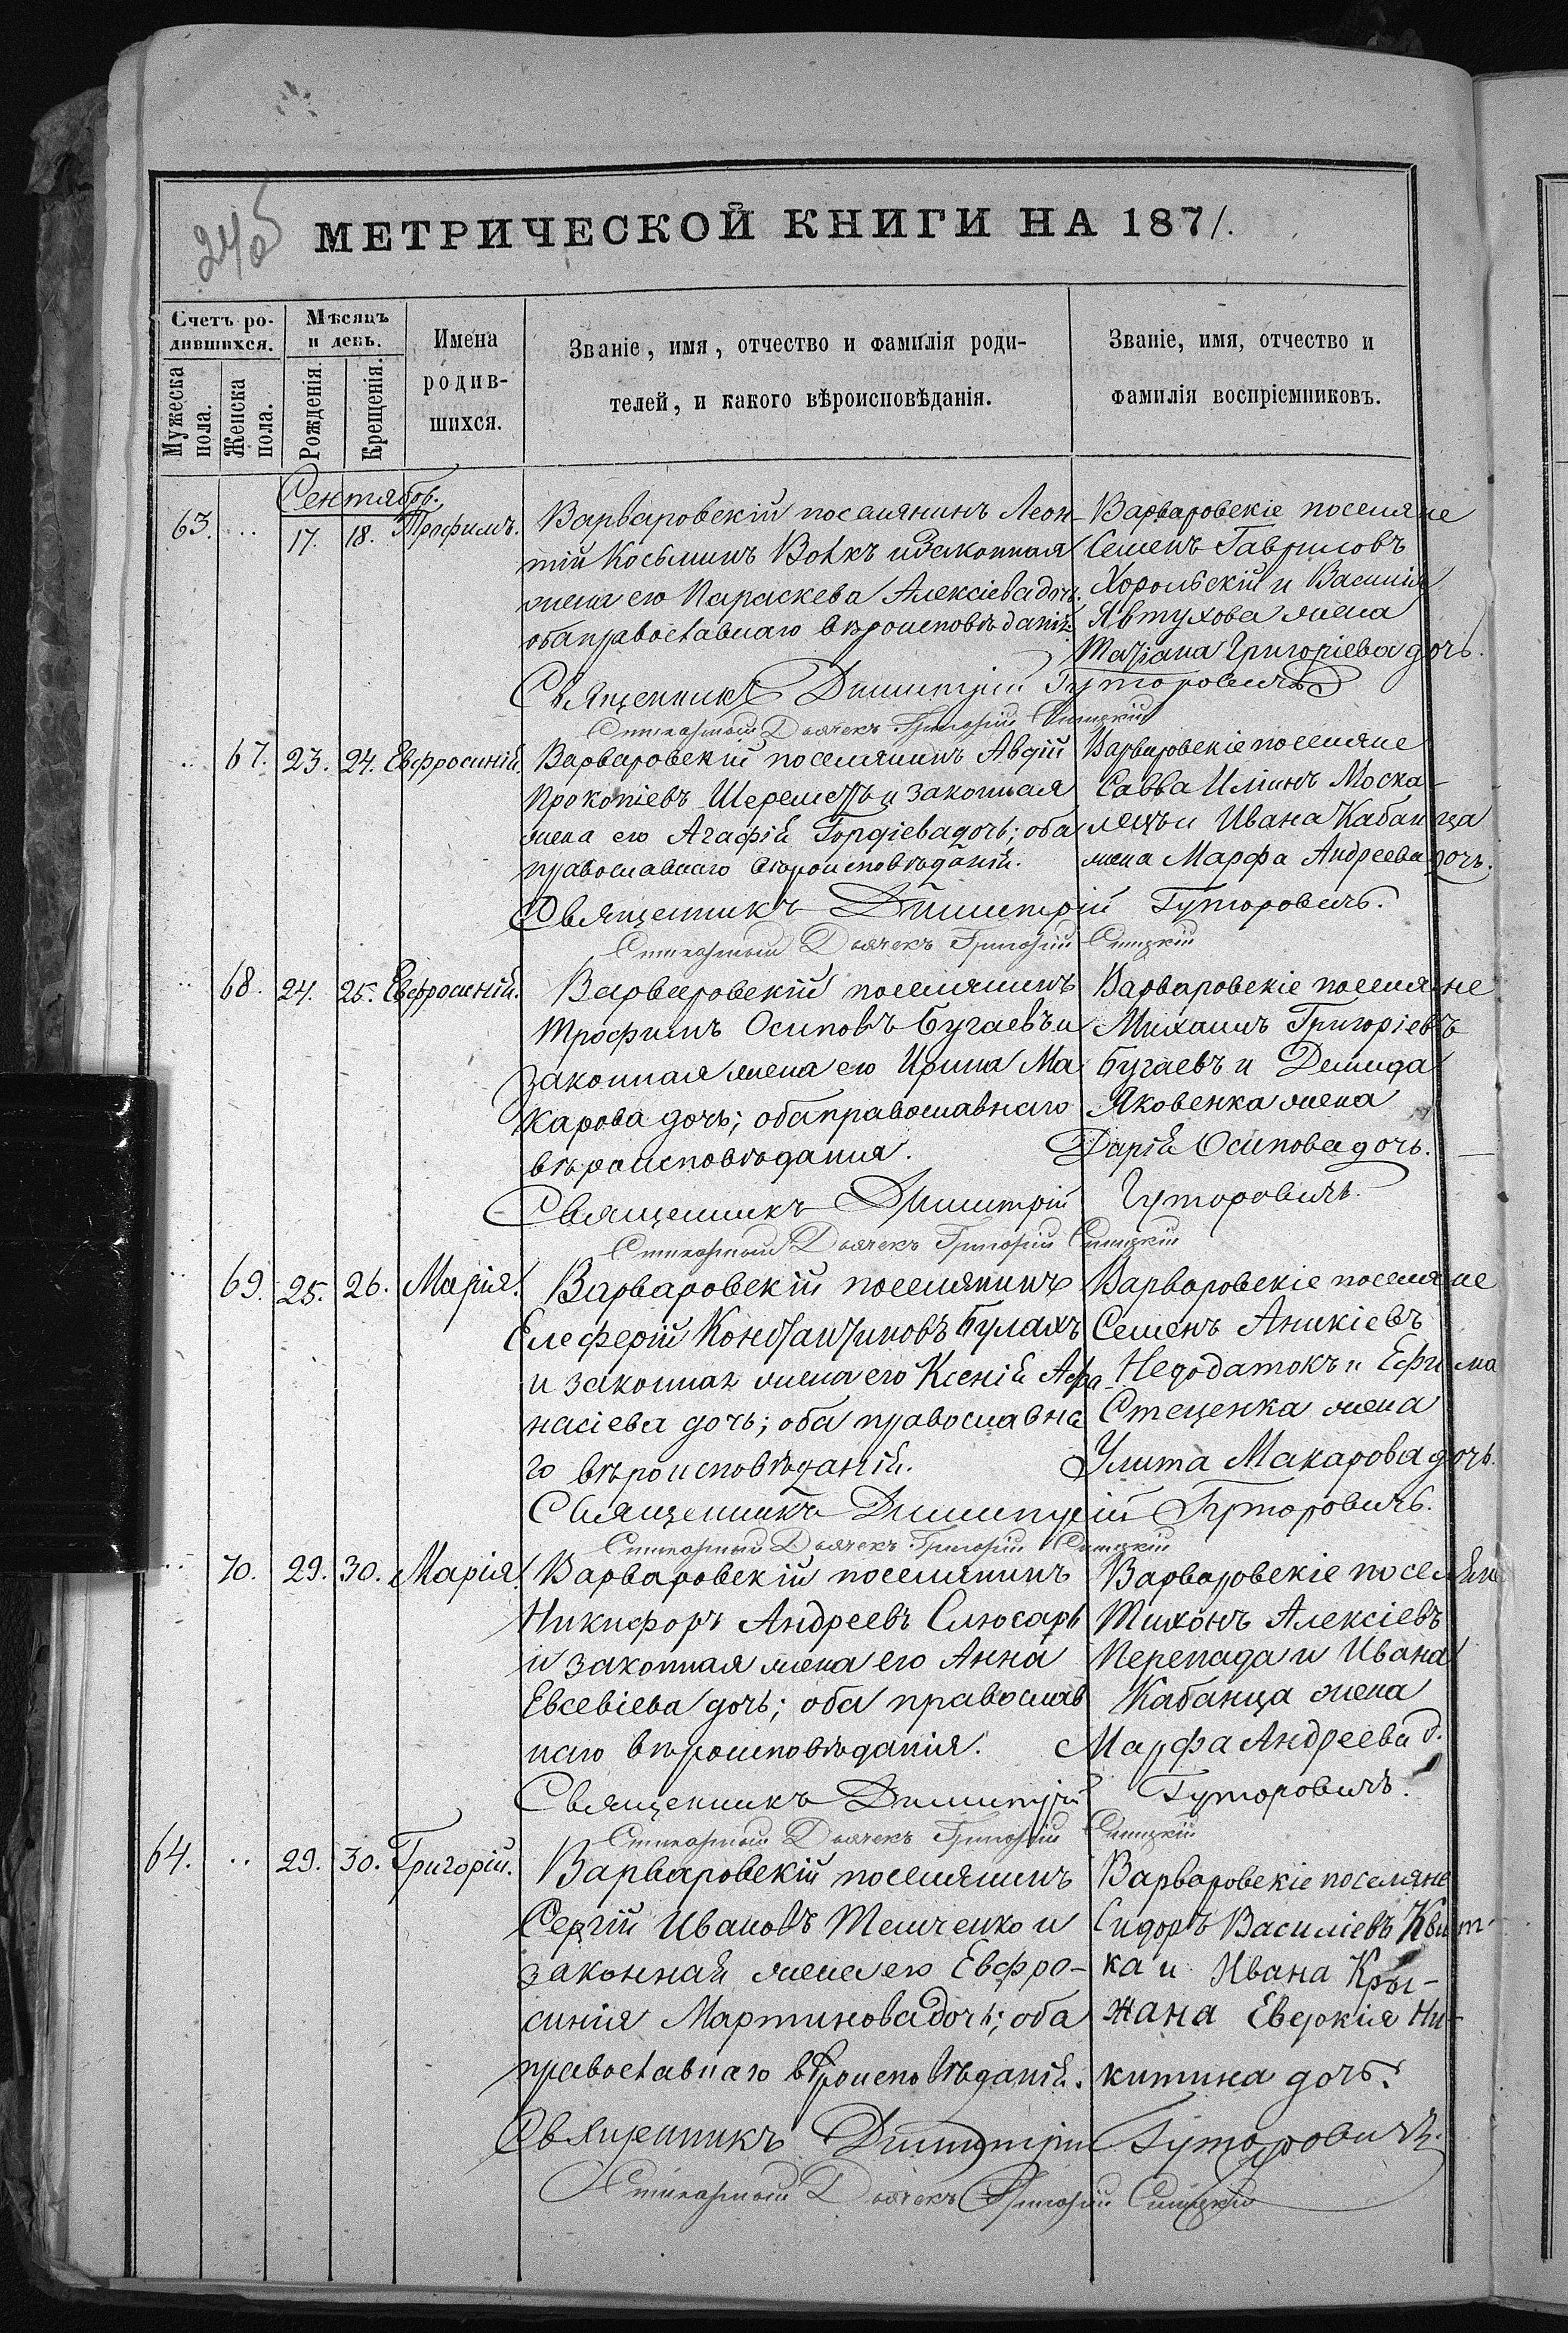 245
МЕТРИЧЕСКОЙ КНИГИ НА 1871.
Счетъ ро-
дившихся.
Мѣсяцъ
и день.
Имена
родив-
шихся.
Званіе, имя, отчество и фамилія роди-
телей, и какого вѣроисповѣданія.
Званіе, имя, отчество и
фамилія воспріемниковъ.
Мужеска
пола.
Женска
пола.
Рожденія.
Крещенія.
Сентябрь.
63. .. 17. 18. Трофимъ.
Варваровскій поселянинъ Леон-
тій Косьминъ Вовкъ и законная
жена его Параскева Алексіева дочь.
оба православнаго вѣроисповѣданія.
Варваровскіе поселяне
Семенъ Гавриловъ
Хорольскій и Василія
Явтухова жена
Татіана Григоріева дочь.
Священникъ Димитрій Гуторовичъ
Стихарный Дьячекъ Григорій Синицкій
.. 67. 23. 24. Евфросинія.
Варваровскій поселянинъ Авдій
Прокопіевъ Шереметъ и законная
жена его Агафія Гордіева дочь; оба
православнаго вѣроисповѣданія.
Варваровскіе поселяне
Савва Илiинъ Моска-
лецъ и Ивана Кабанца
жена Марфа Андреева дочь.
Священникъ Димитрій Гуторовичъ.
Стихарный Дьячекъ Григорій Синицкій
.. 68. 24. 25. Евфросинія.
Варваровскій поселянинъ
Трофимъ Осиповъ Бугаевъ и
законная жена его Ирина Ма
карова дочь; оба православнаго
вѣроисповѣдания.
Варваровскіе поселяне
Михаилъ Григоріевъ
Бугаевъ и Демида
Яковенка жена
Дарія Осипова дочь.
Священникъ Димитрій Гуторовичъ.
Стихарный Дьячекъ Григорій Синицкій
.. 69. 25. 26. Марія.
Варваровскій поселянинъ
Елеферій Константиновъ Булахъ
и законная жена его Ксенія Афа
насіева дочь; оба православна
го вѣроисповѣданія.
Варваровскіе поселяне
Семенъ Аникіевъ
Недодатокъ и Ефима
Стеценка жена
Улита Макарова дочь.
Священникъ Димитрій Гуторовичъ.
Стихарный Дьячекъ Григорій Синицкій
.. 70. 29. 30. Марія.
Варваровскій поселянинъ
Никифоръ Андреевъ Слюсарь
и законная жена его Анна
Евсевіева дочь; оба православ
наго вѣроисповѣданія.
Варваровскіе поселяне
Тихонъ Алексіевъ
Перепада и Ивана
Кабанца жена
Марфа Андреева д.
Священникъ Димитрій Гуторовичъ.
Стихарный Дьячекъ Григорій Синицкій
64. .. 29. 30. Григорій.
Варваровскій поселянинъ
Сергій Ивановъ Темченко и
законная жена его Евфро-
синія Мартинова дочь; оба
православнаго вѣроисповѣданія.
Варваровскіе поселяне
Сидоръ Василіевъ Квит-
ка и Ивана Кры-
жана Еверкія Ни-
китина дочь.
Священникъ Димитрій Гуторовичъ.
Стихарный Дьячекъ Григорій Синицкій